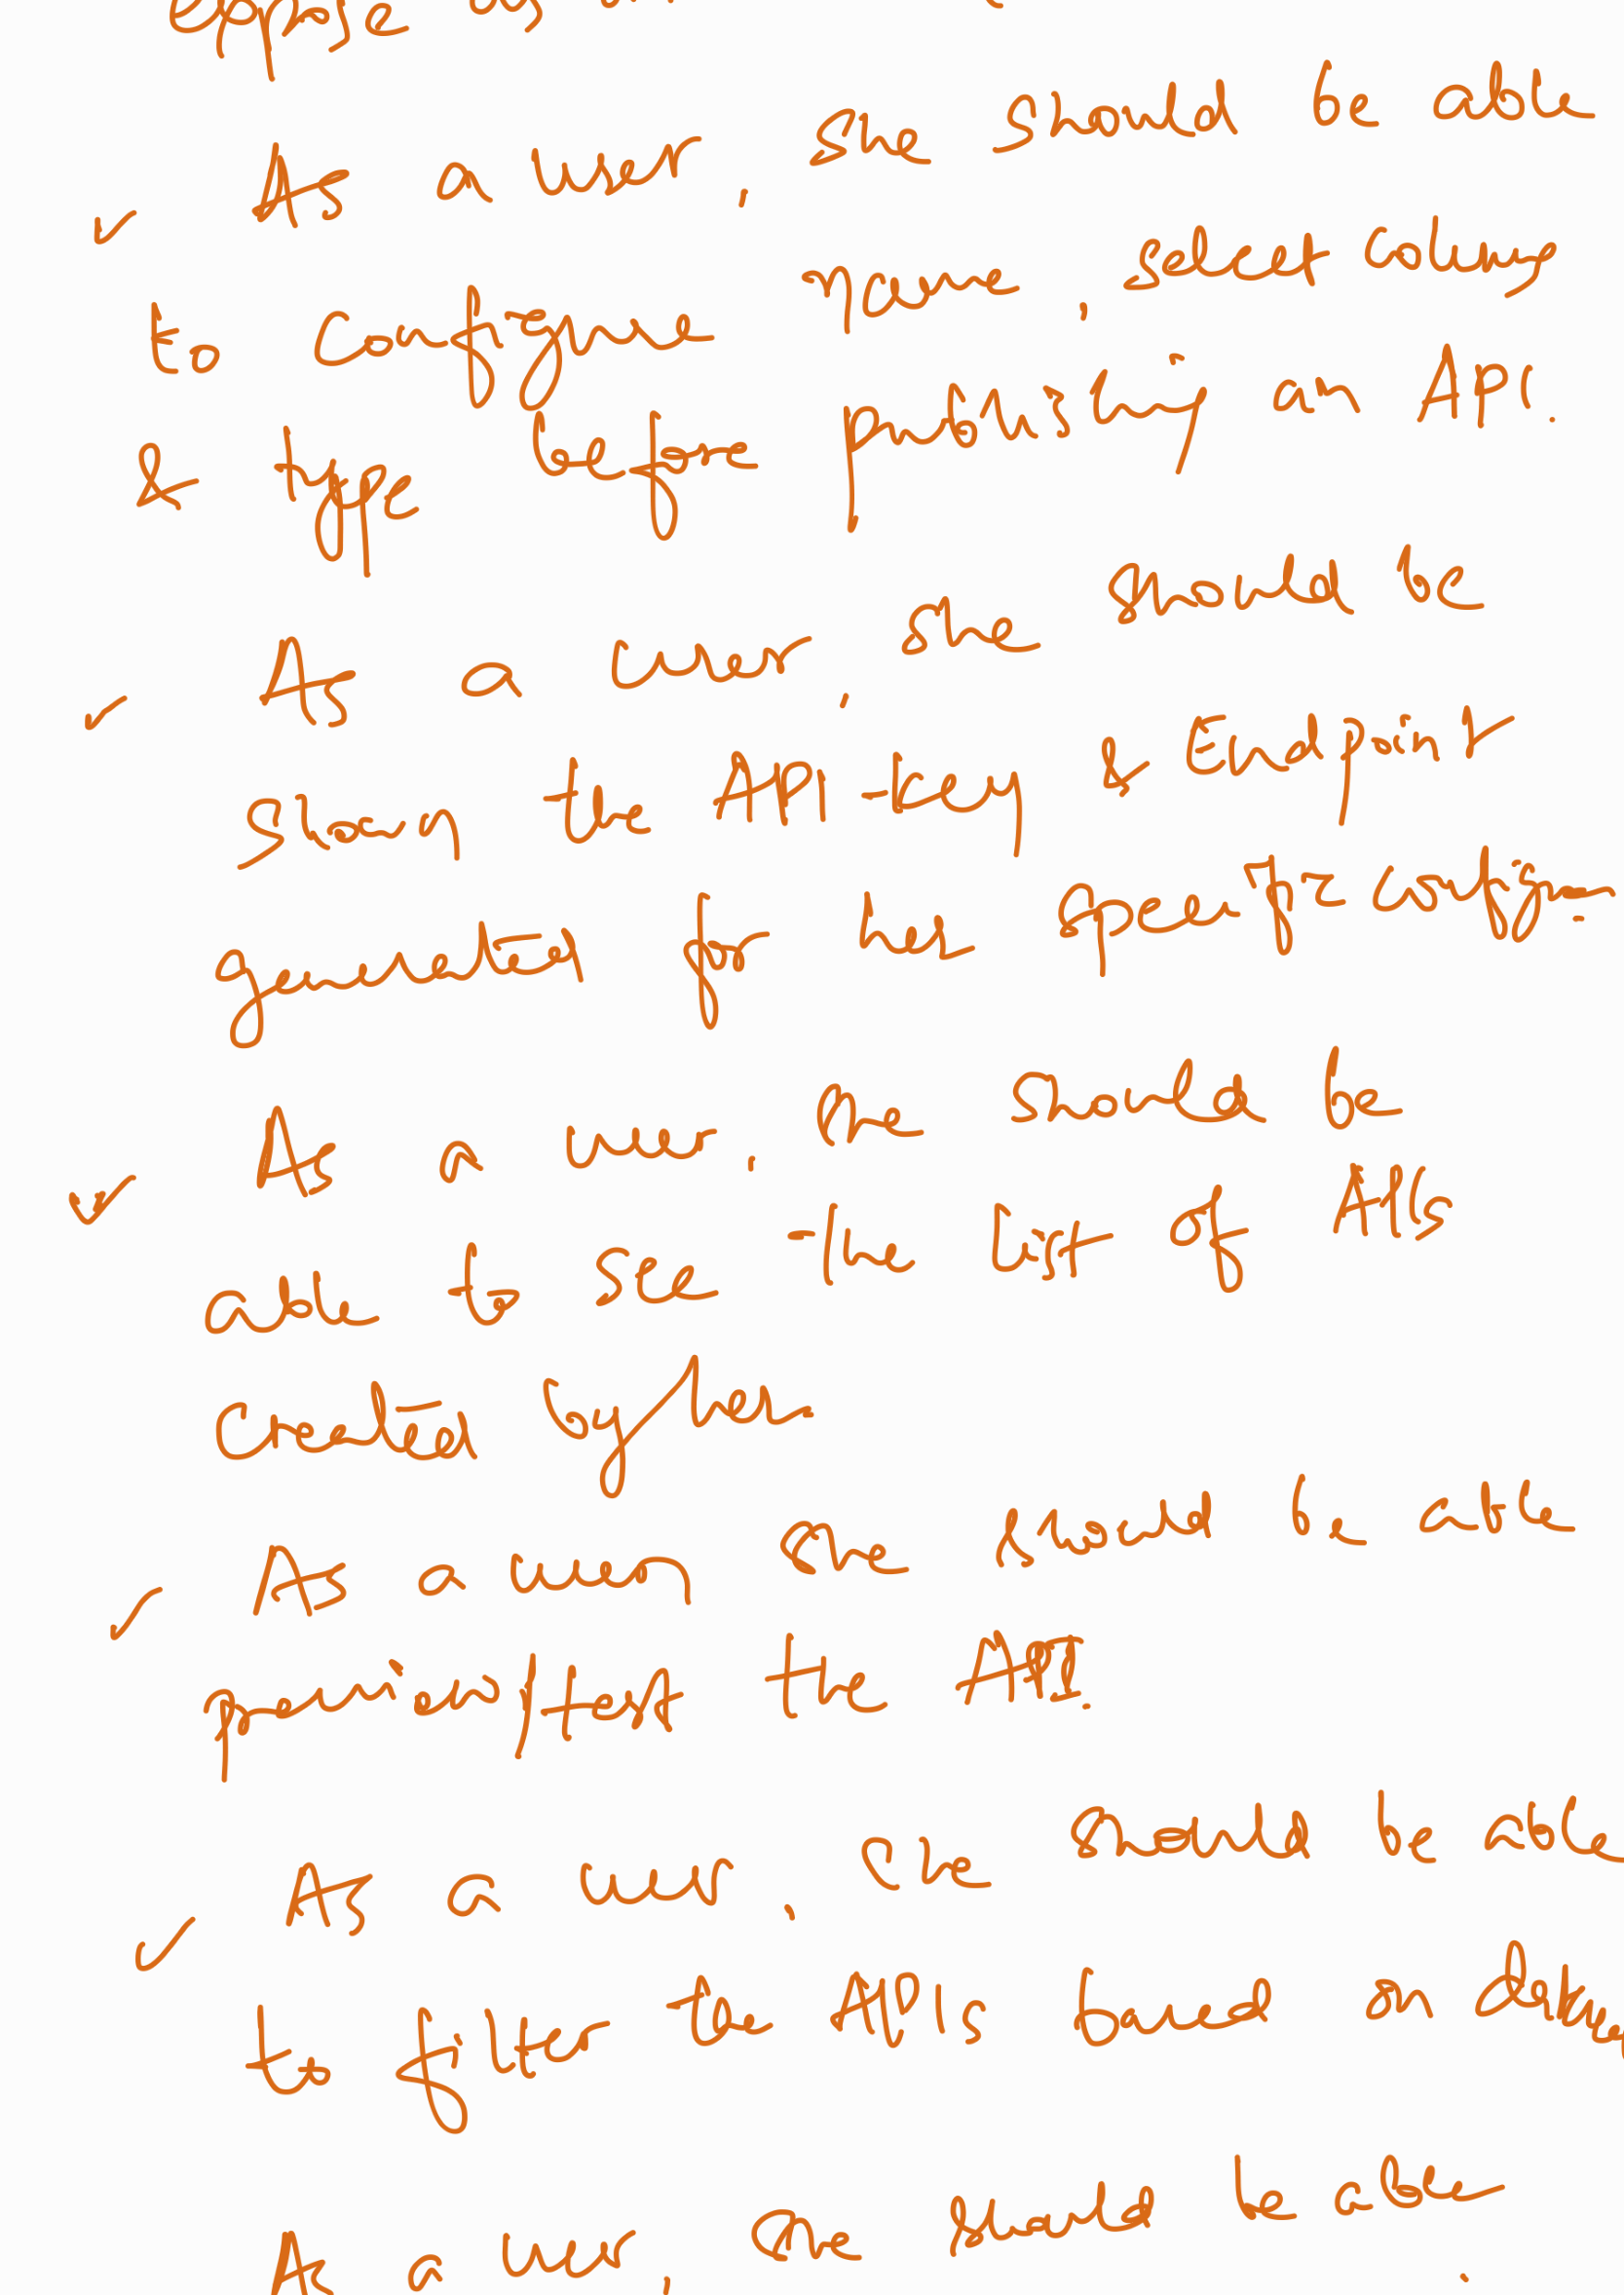 ✓ As a user, she should be able
to configure name, select columns
& type before publishing an API.
✓ As a user, she should be
the API-key & Endpoint
generated for her specific config.
✓ As a user, she should be
able to see the list of APIs
created by her
✓ As a user she should be able
preview/test the API.
✓ As a user, she should be able
to filter the APIs based on
As a user, she should be able